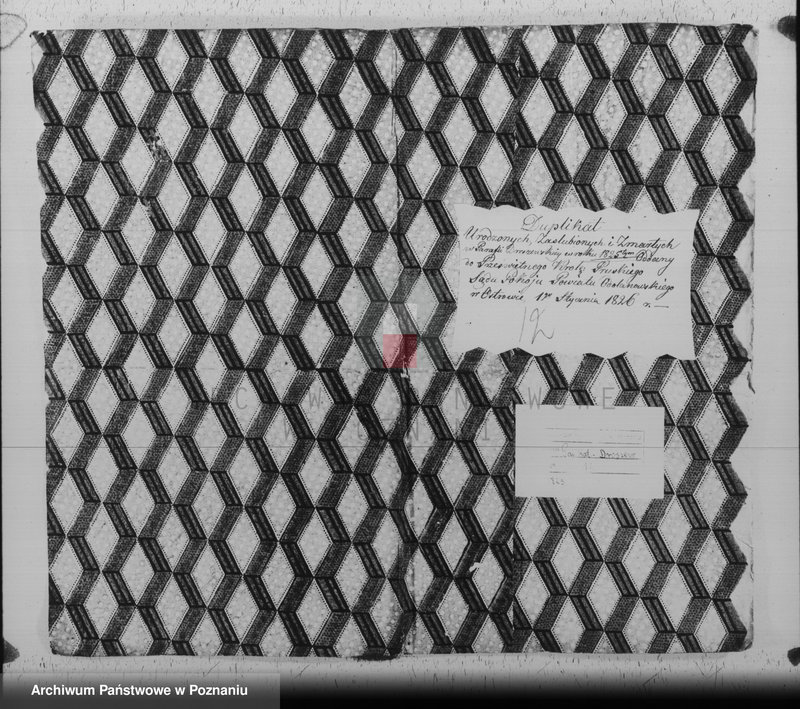 Duplikat
Urodzonych, Zaslubionych i Zmarłych
w Parafii w roku 1825tym Podany
do Prześwietnego Król: Pruskiego
Sądu Pokoju Powiatu Odolanowskiego
w Ostrowie 1go Stycznia 1826 r.
12
Par. kat. Droszew
Archiwum Państwowe w Poznaniu